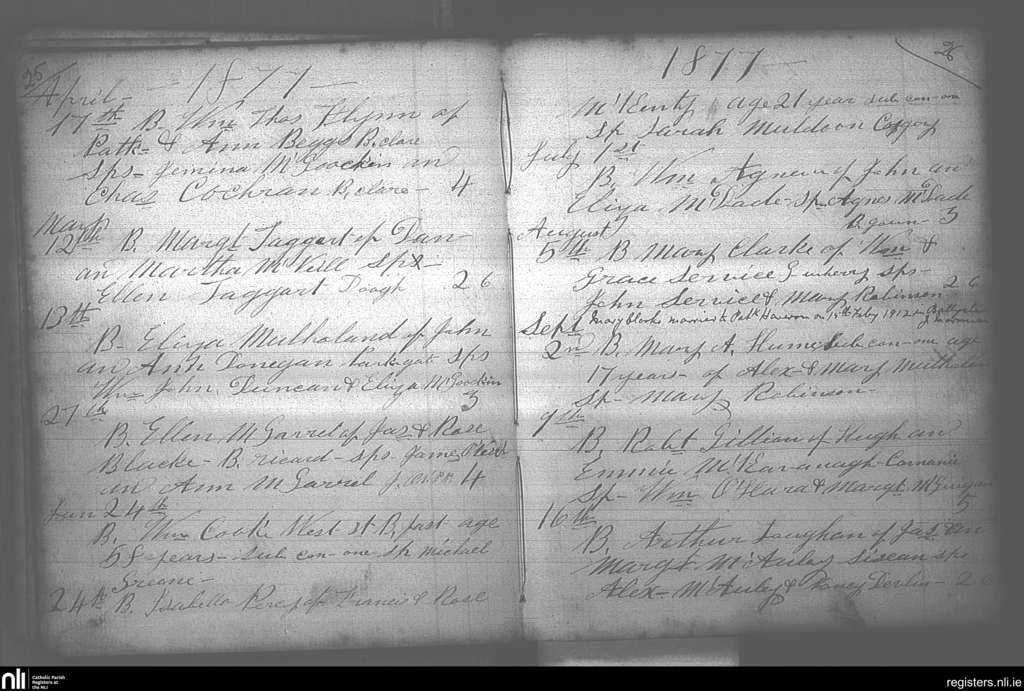 25
April — 1877 —
17th B. Wm Thos Flynn of
Path= & Ann Beggs B.clare
sps= Jemina McGookin an
Chas Cochran B,clare— 4
May
12th B. Margt Taggart of Dan
an Martha McNeill sps—
Ellen Taggart Doagh 2 6
13th
B— Eliza Mulholand of John
an Ann Donegan Parkgate sps
Wm John Duncan & Eliza McGookin
3
27th
B. Ellen McGarrel of Jas & Rose
Blacke— B. ricard— sps. James
an Ann McGarrel 4
Jun 24th
B. Wm Cooke West st B,fast age
58 years— sub con-one sp Michael
Greene—
24th B. Isabella of Francis & Rose
1877 — 26
age 21 year sub con-one
sp Sarah Muldoon
July 1st
B. Wm Agnew of John an
Eliza McDade sp— Agnes McDade
B. gawn— 3
August
5th B Mary Clarke of Wm &
Grace Service sps—
John Service & Mary Robinson 2 6
Mary Clarke married to Patk on 15th Feby 1912
Sept
2nd B. Mary A. Hume sub con-one age
17 years— of Alex & Mary
Sp— Mary Robinson—
9th
B. Robt Gillian of Hugh an
Emmie McKavanagh—
Sp— Wm O'Hara & Margt
5
16th
B. Arthur Loughan of Jas & an
Margt McAuley sps
Alex= McAuley & 2 6
nli
Catholic Parish
Registers at
the NLI
registers.nli.ie